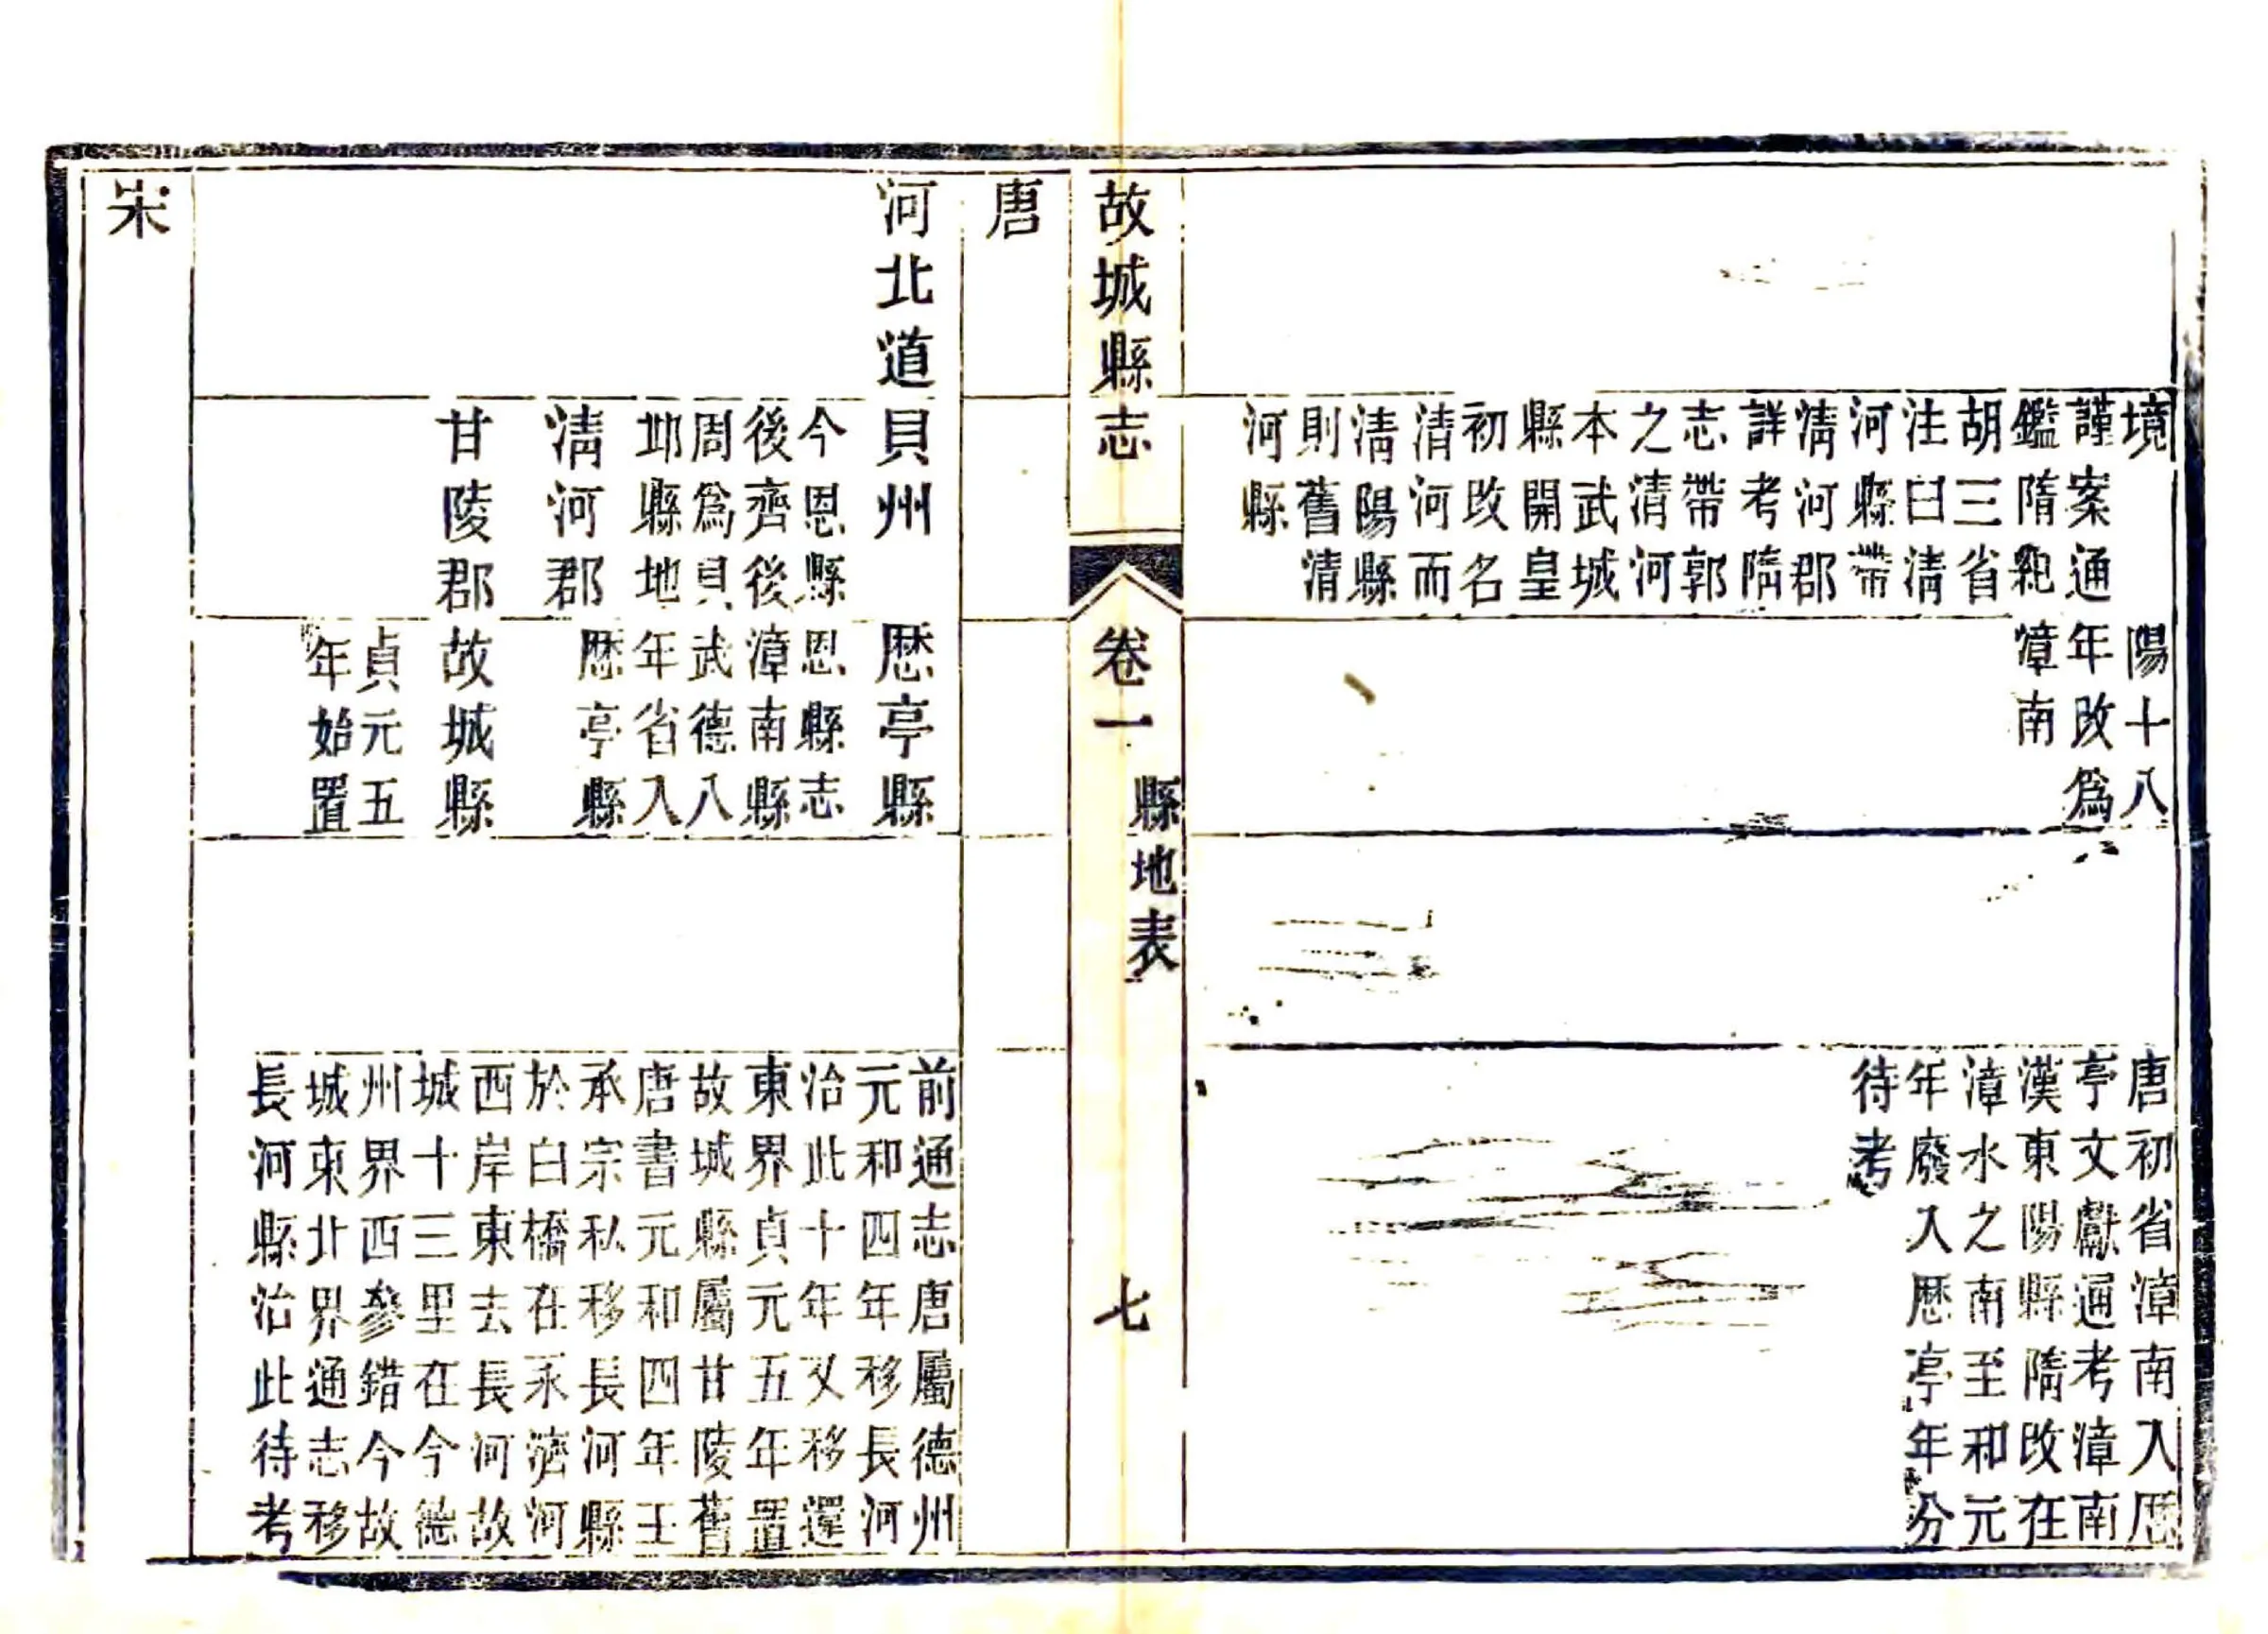 境
謹案通
鑑隋紀
胡三省
注曰清
河縣帶
清河郡
詳考隋
志帶郭
之清河
本武城
縣開皇
初改名
清河而
清陽縣
則舊清
河縣
陽十八
年改爲
漳南
唐初省漳南入歷
亭文獻通考漳南
漢東陽縣隋改在
漳水之南至和元
年廢入歷亭年分
待考
故城縣志
卷一
縣地表
七
唐
河北道
貝州
今恩縣
後齊後
周爲貝
邱縣地
清河郡
甘陵郡
歷亭縣
恩縣志
漳南縣
武德八
年省入
歷亭縣
故城縣
貞元五
年始置
前通志唐屬德州
元和四年移長河
治此十年又移還
東界貞元五年置
故城縣屬甘陵舊
唐書元和四年王
承宗私移長河縣
於白橋在永濟河
西岸東去長河故
城十三里在今德
州界西參錯今故
城東北界通志移
長河縣治此待考
宋